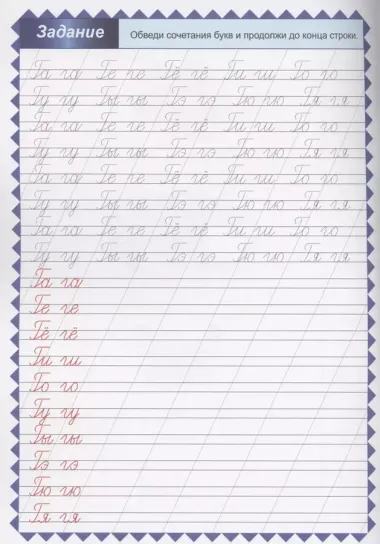 Задание
Обведи сочетания букв и продолжи до конца строки.
Га га Ге ге Гё гё Ги ги Го го
Гу гу Гы гы Гэ гэ Гю гю Гя гя
Га га Ге ге Гё гё Ги ги Го го
Гу гу Гы гы Гэ гэ Гю гю Гя гя
Га га Ге ге Гё гё Ги ги Го го
Гу гу Гы гы Гэ гэ Гю гю Гя гя
Га га Ге ге Гё гё Ги ги Го го
Гу гу Гы гы Гэ гэ Гю гю Гя гя
Га га
Ге ге
Гё гё
Ги ги
Го го
Гу гу
Гы гы
Гэ гэ
Гю гю
Гя гя